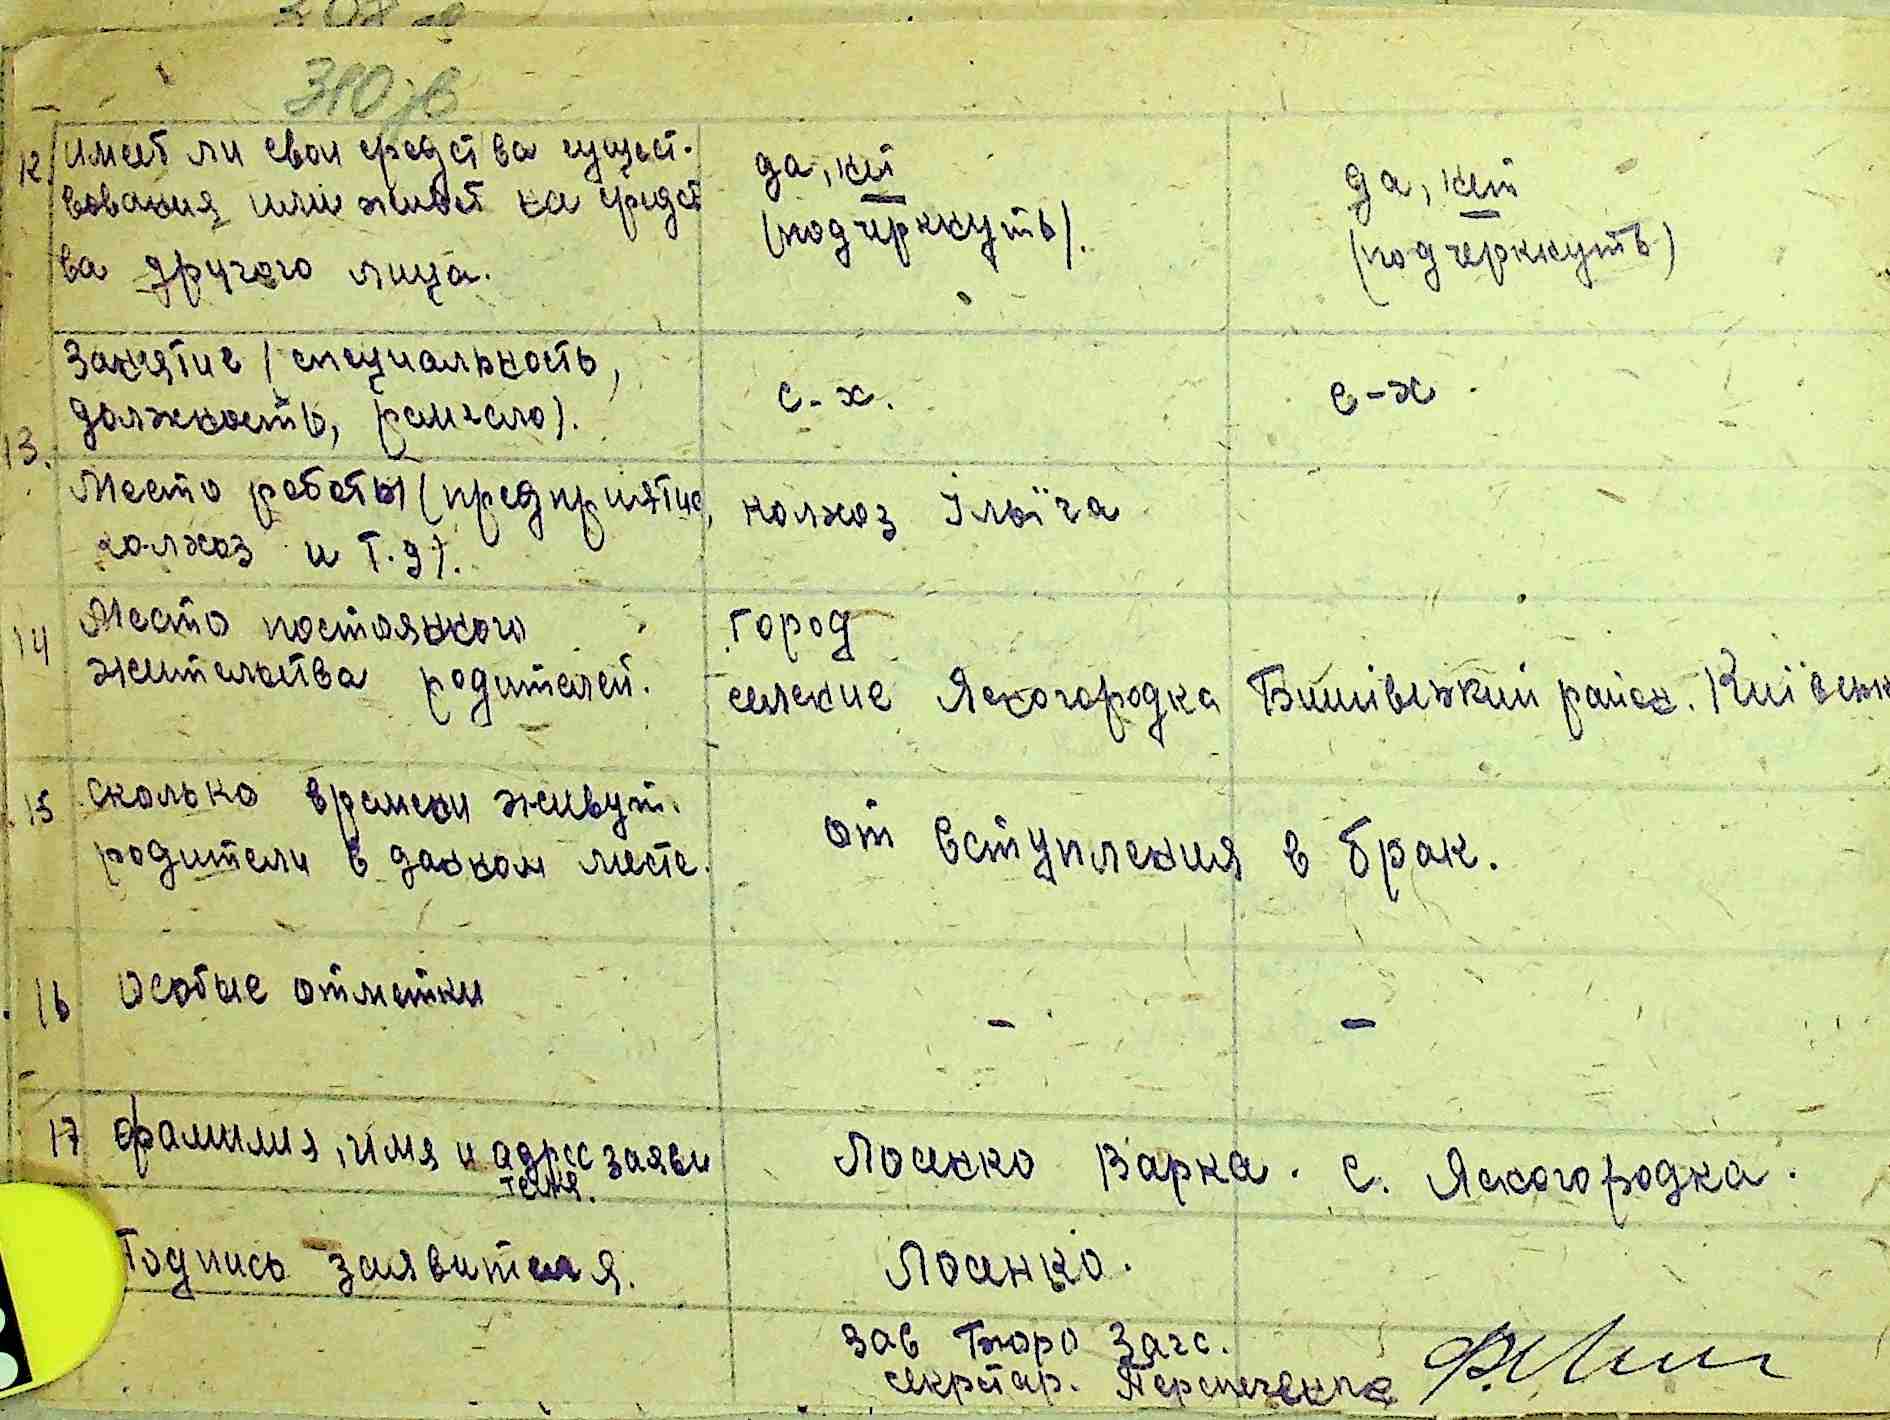 310 зв
12. имеет ли свои средства сущест-
вования или живет на средст
ва другого лица.
да, нет
(подчеркнуть).
да, нет
(подчеркнуть)
13. Занятие (специальность,
должность, ремесло).
с-х.
с-х.
Место работы (предприятие,
колхоз и т.д).
колхоз Ілыїча
14 Место постоянного
жительства родителей.
город
селение Ясногородка Бишівський район. Київськ
15 сколько времени живут
родители в данном месте.
от вступления в брак.
16 Особые отметки
-
-
17 фамилия, имя и адрес заяви
теля.
Варка. с. Ясногородка.
Подпись заявителя.
зав Бюро Загс.
секретар.